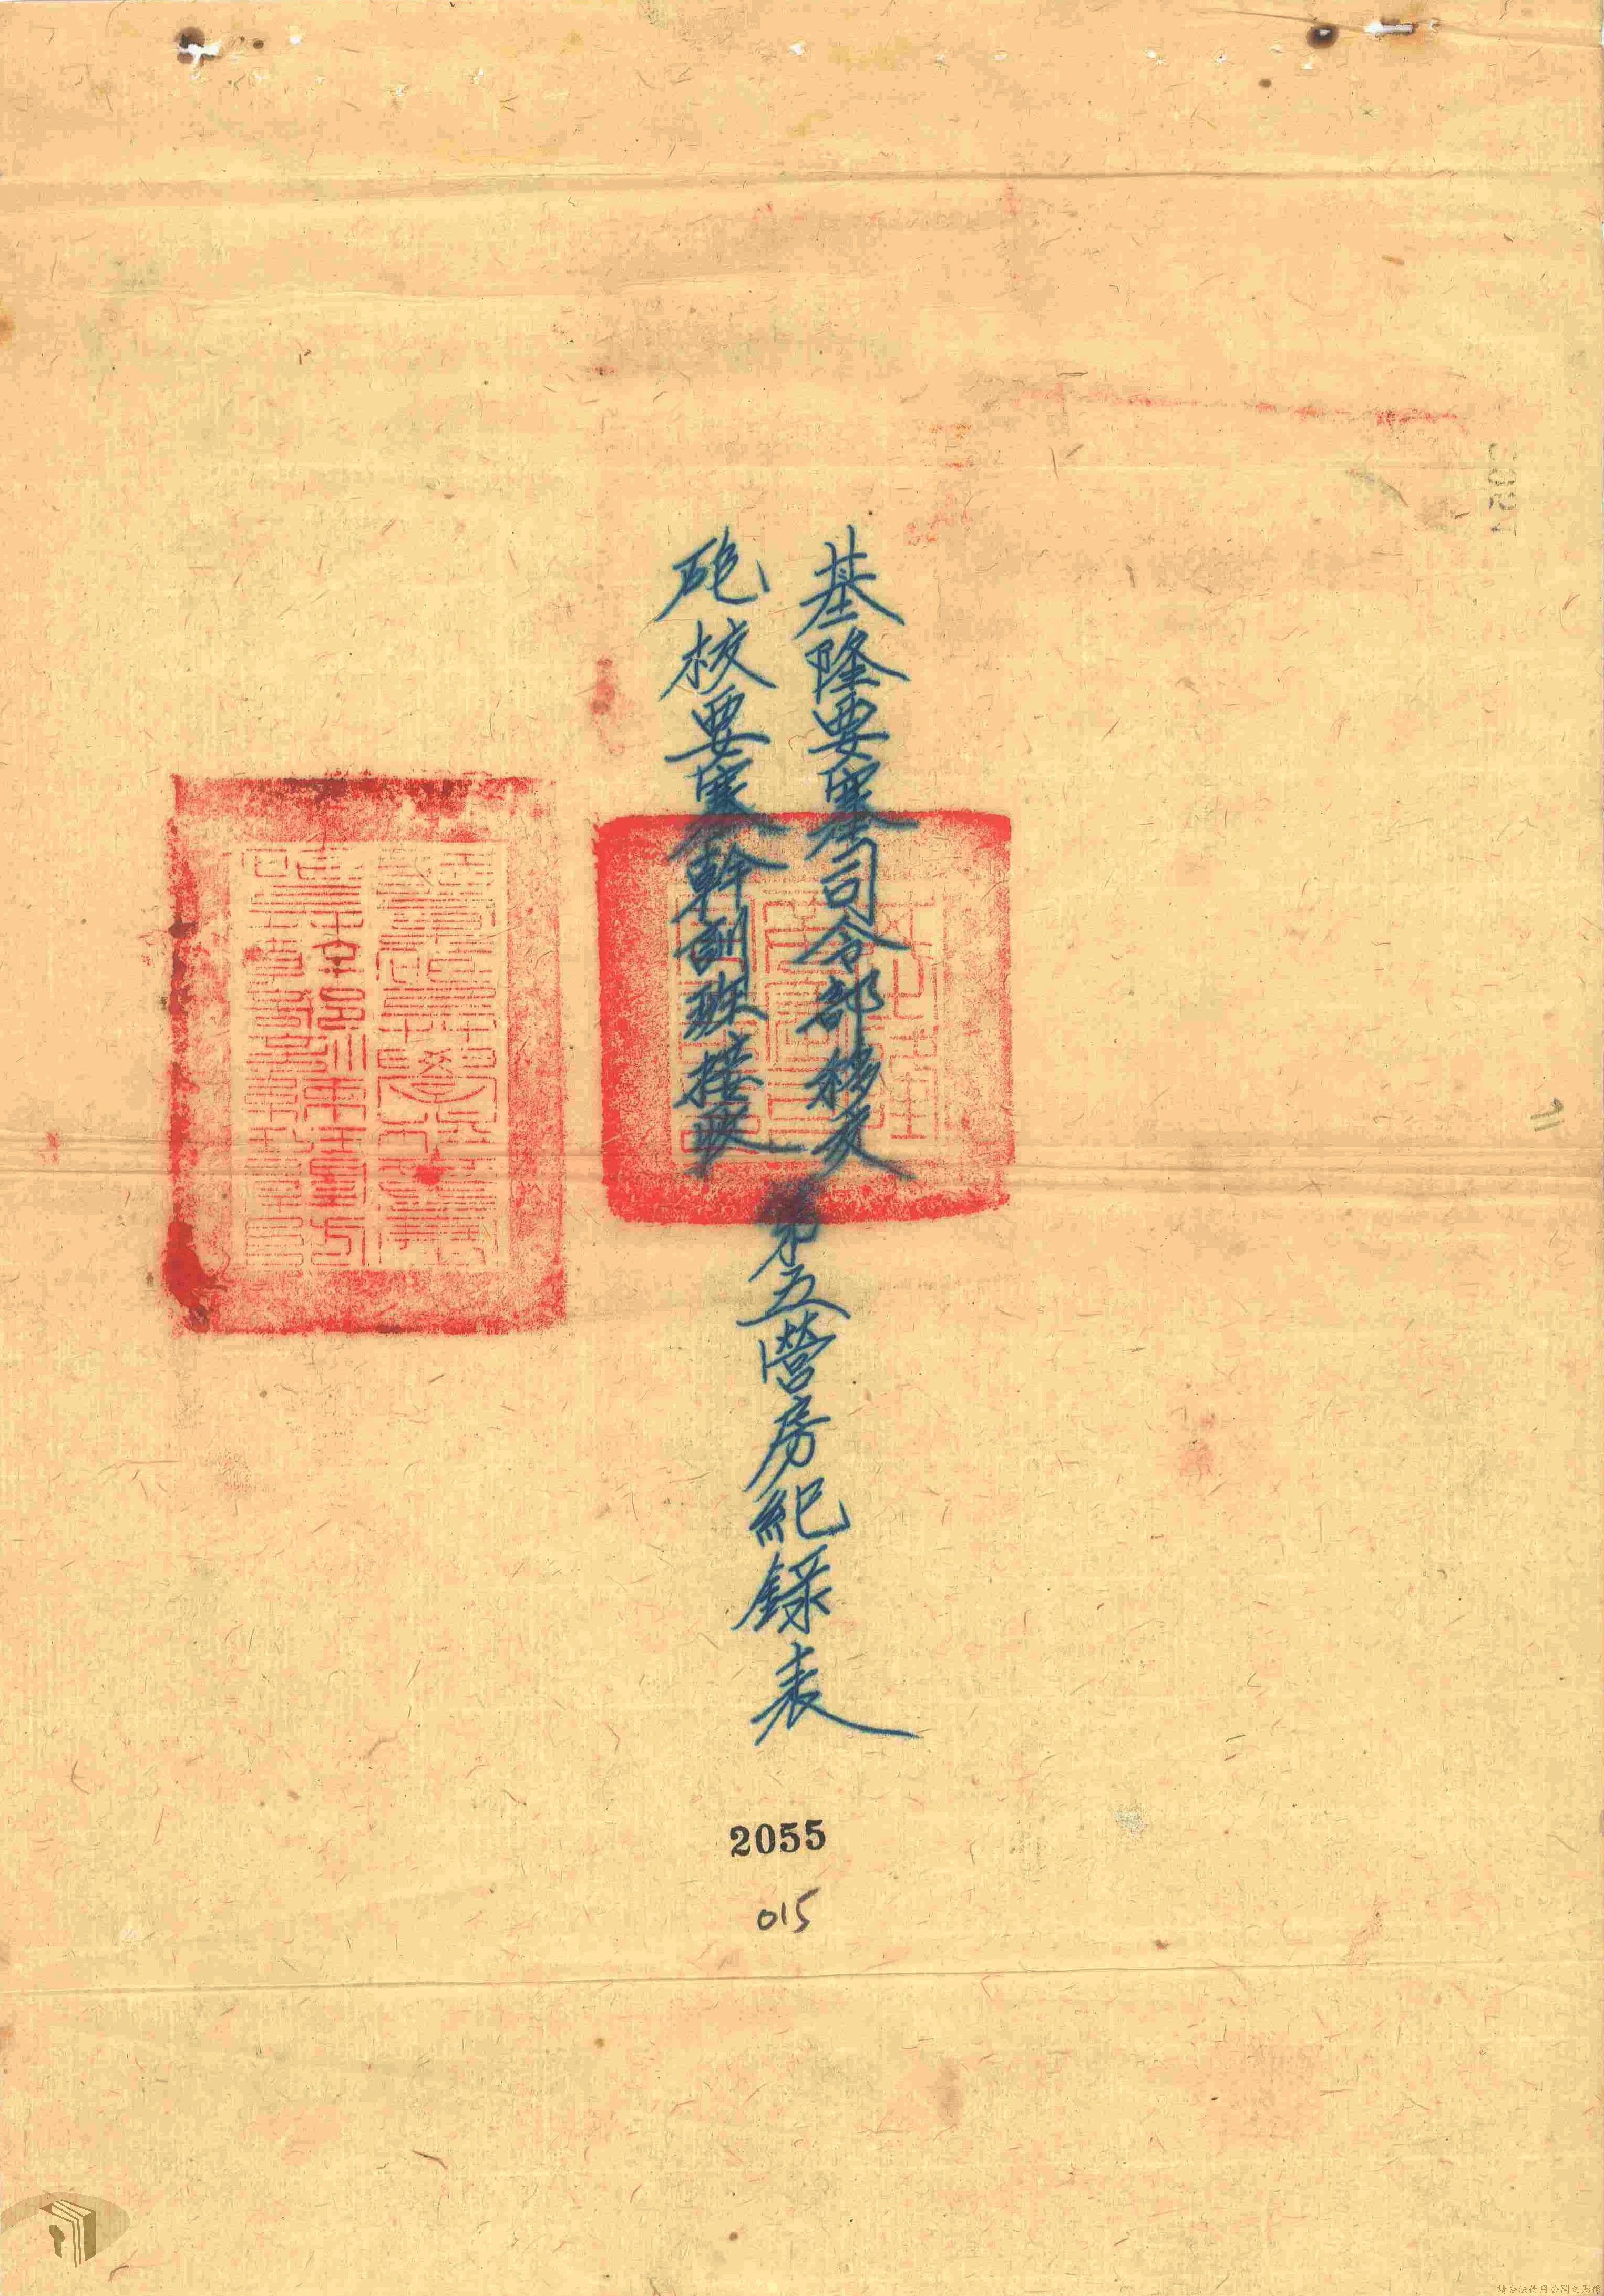 基隆要塞司令部移交
砲校要塞幹訓班接收
第五營房紀錄表
2055
015
請合法使用公開之影像